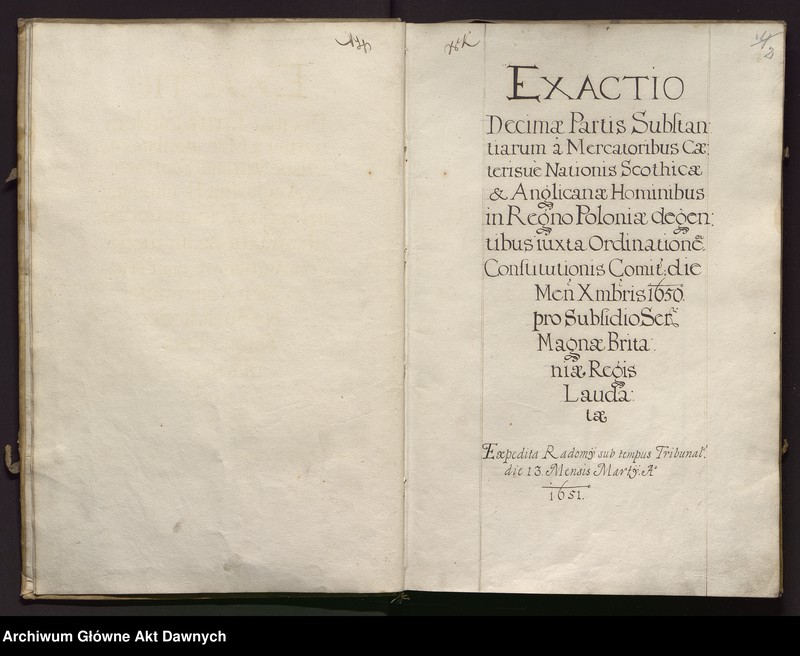 EXACTIO
Decimæ Partis Substan:
tiarum à Mercatoribus Cæ:
terisué Nationis Scothicæ
& Anglicanæ Hominibus
in Regno Poloniæ degen:
tibus iuxta Ordinationẽ
Constitutionis Comit: die
Men̄ Xmbris 1650.
pro Subsidio Ser:
Magnæ Brita:
niæ Regis
Lauda:
tæ
Expedita Radomÿ sub tempus Tribunal:
die 13. Mensis Martÿ. Aº
1651.
Archiwum Główne Akt Dawnych